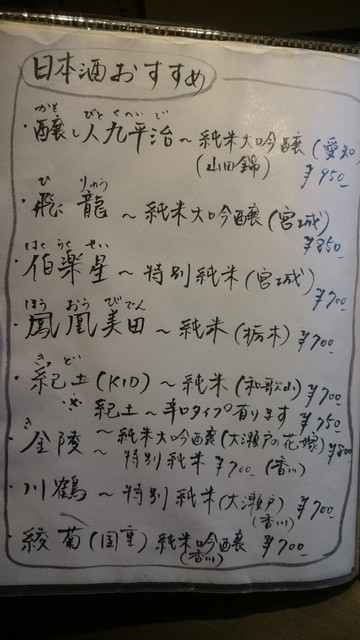 日本酒おすすめ
かも びとくへいじ
・醸し人九平治～純米大吟醸(愛知)
(山田錦) ¥950-
ひ りゅう
・飛龍～純米大吟醸(宮城)
¥850-
はくらくせい
・伯楽星～特別純米(宮城)
¥700-
ほう おう びでん
・鳳凰美田～純米(栃木) ¥700-
きっ ど
・紀土(KID)～純米(和歌山) ¥700-
紀土～辛口タイプ有ります ¥750-
き
・金陵～純米大吟醸(大瀬戸の花嫁) ¥800
～特別純米 ¥700-(香川)
・川鶴～特別純米(大瀬戸) ¥700-
(香川)
・綾菊(国重)純米吟醸 ¥700-
(香川)